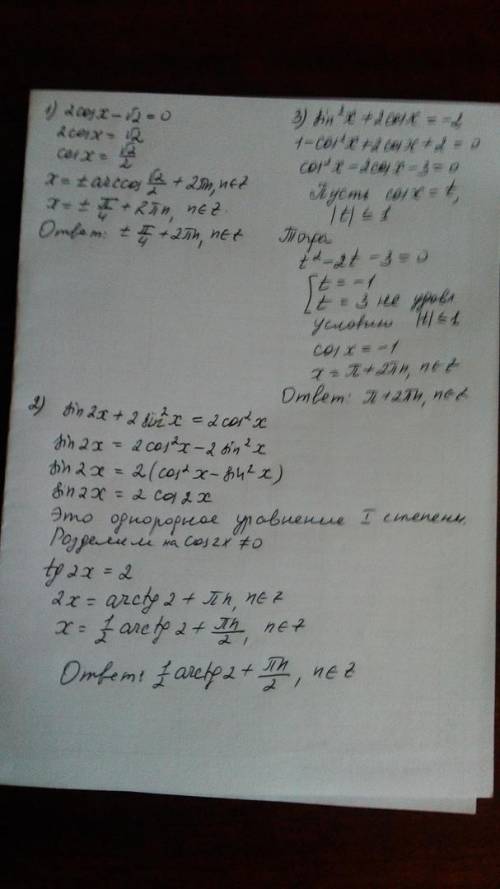 1) 2cosx − √2 = 0
2cosx = √2
cosx = √2/2
x = ± arccos √2/2 + 2πn, n∈Z
x = ± π/4 + 2πn, n∈Z.
Ответ: ± π/4 + 2πn, n∈Z
3) sin²x + 2cosx = −2
1−cos²x + 2cosx + 2 = 0
cos²x − 2cosx − 3 = 0
Пусть cosx = t,
|t| ≤ 1
Тогда
t² − 2t − 3 = 0
[ t = −1
t = 3 не удовл.
условию |t| ≤ 1
cosx = −1
x = π + 2πn, n∈Z
Ответ: π + 2πn, n∈Z
2) sin2x + 2sin²x = 2cos²x
sin2x = 2cos²x − 2sin²x
sin2x = 2(cos²x − sin²x)
sin2x = 2cos2x
Это однородное уравнение I степени.
Разделим на cos2x ≠ 0
tg2x = 2
2x = arctg2 + πn, n∈Z
x = 1/2 arctg2 + πn/2, n∈Z
Ответ: 1/2 arctg2 + πn/2, n∈Z